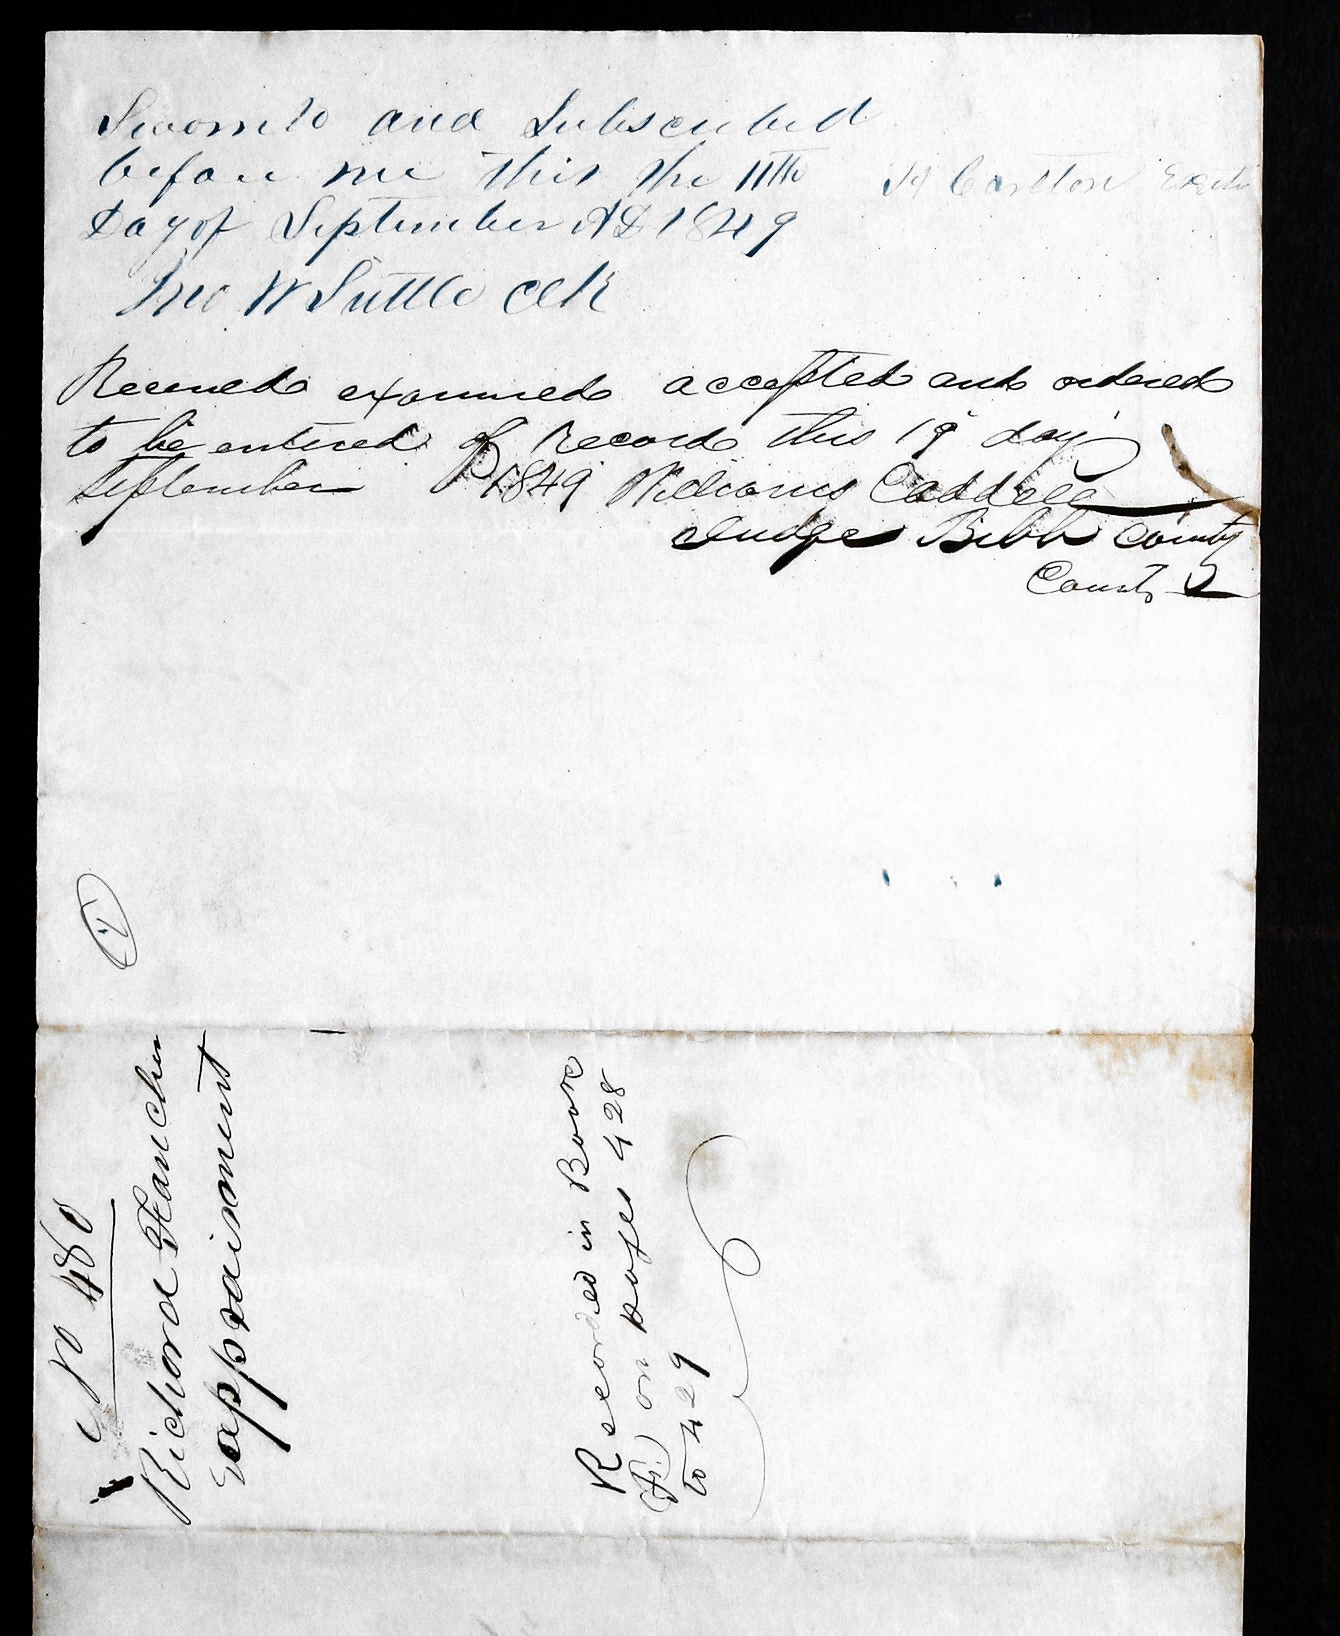 Sworn to and Subscribed
before me this the 11th
Day of September AD 1849
Carlton
Jno W Suttle Clk
Received examined accepted and ordered
to be entered of Record this 19 day
September 1849 William Caddell
Judge Bibb County
Court
1
No 480
Richard Fancher
appraisment
Recorded in Book
on pages 428
to 429